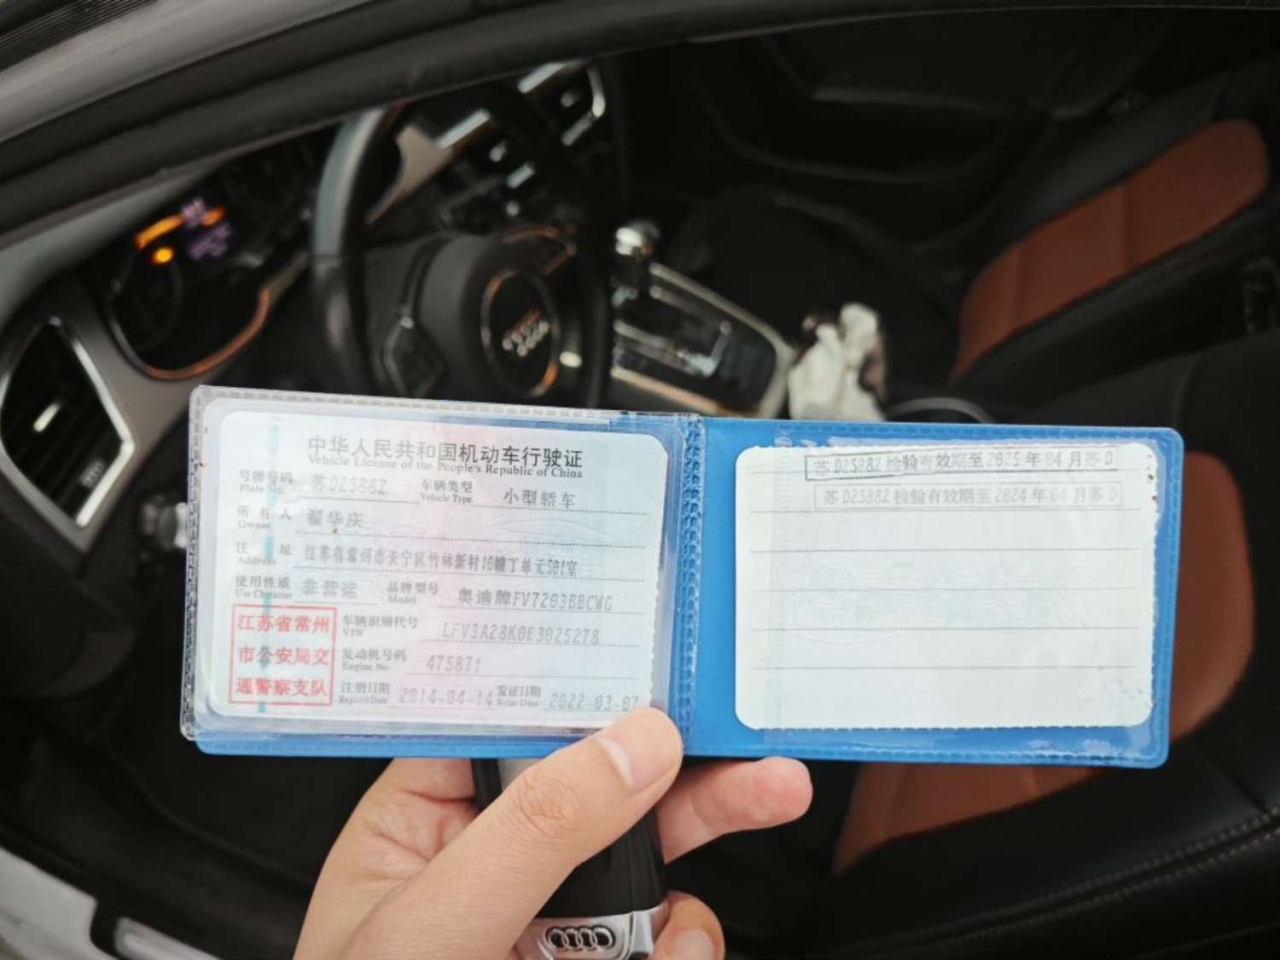 中华人民共和国机动车行驶证
Vehicle License of the People's Republic of China
号牌号码 苏D2588Z 车辆类型 小型轿车
Plate No. Vehicle Type
所有人 翟华庆
Owner
住址 江苏省常州市天宁区竹林新村10幢丁单元501室
Address
使用性质 非营运 品牌型号 奥迪牌FV7203BBCWG
Use Character Model
江苏省常州
市公安局交
通警察支队
车辆识别代号 LFV3A28K0E3025278
VIN
发动机号码 475871
Engine No.
注册日期 2014-04-14 发证日期 2022-03-07
Register Date Issue Date
苏D2588Z 检验有效期至2025年04月苏D
苏D2588Z 检验有效期至2024年04月苏D